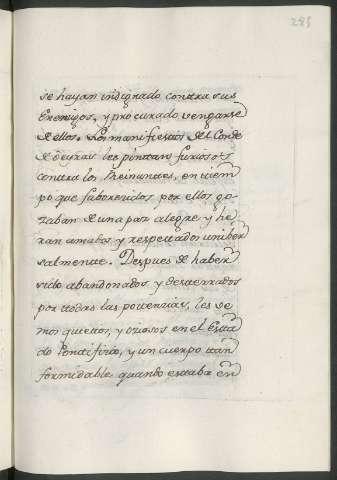 285
se hayan indignado contra sus
Enemigos, y procurado vengarse
de ellos. Los manifiestos del Conde
de Oeyras les pintan furiosos
contra los Reinantes, en tiem
po que faborecidos por ellos go
zaban de una paz alegre y he
ran amados y respetados univer
salmente. Despues de haber
sido abandonados, y desterrados
por todas las potencias, les ve
mos quietos, y oziosos en el Esta
do Pontificio, y un cuerpo tan
formidable quando estaba en